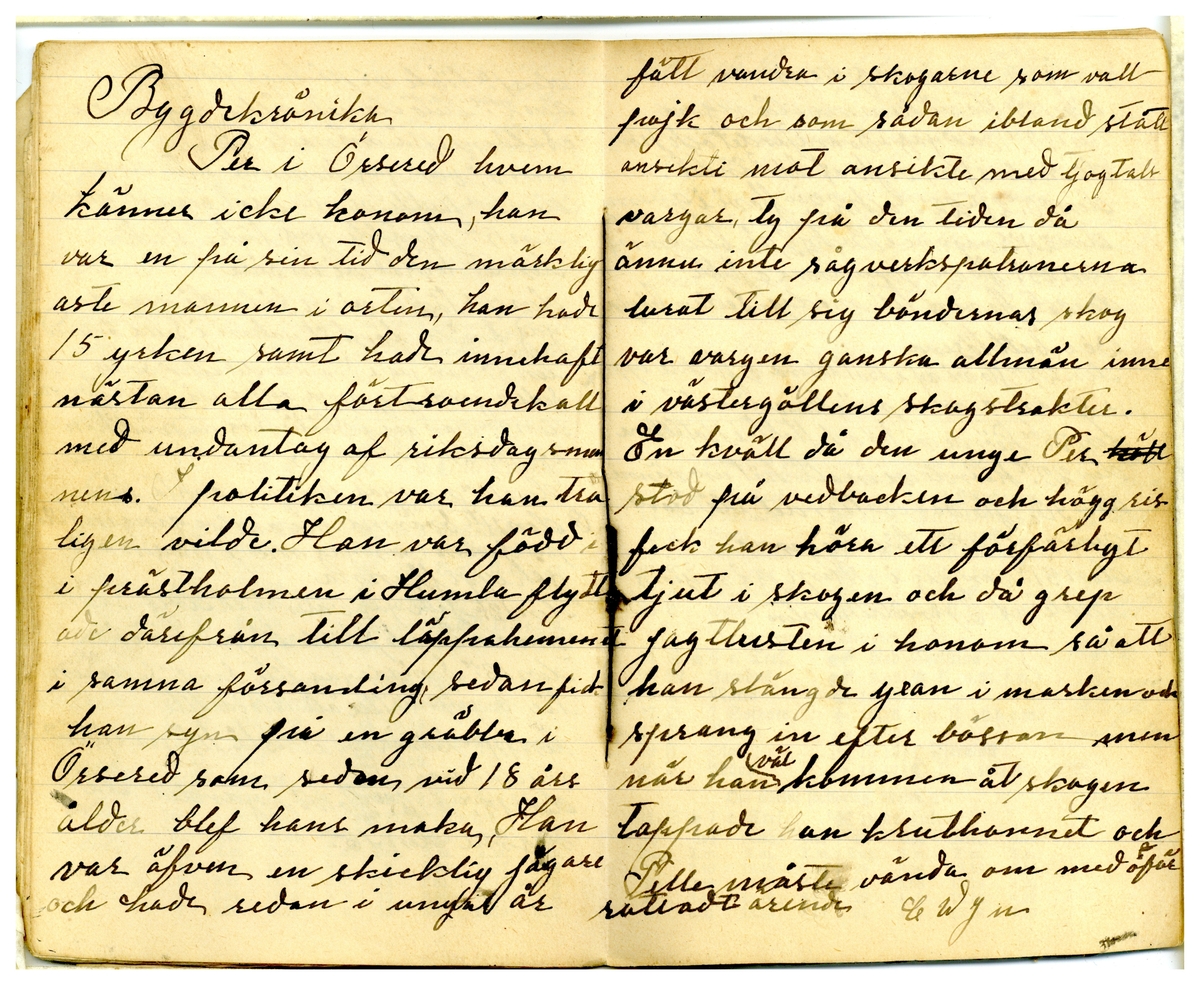 Bygdekrönika
Per i Örsered hvem
känner icke honom, han
var en på sin tid den märklig
aste mannen i orten, han hade
15 yrken samt hade innehaft
nästan alla förtroendekall
med undantag af riksdagsman
nens. I politiken var han tro
ligen vilde. Han var född i
i prästholmen i Humla flytt
ade därefrån till läppahemmet
i samma församling, sedan fick
han syn på en gräbba i
Örsered som sedan vid 18 års
ålder blef hans maka, Han
var äfven en skicklig jägare
och hade redan i unga år
fått vandra i skogarne som vall
pojk och som sådan ibland stått
ansikti mot ansikte med tjogtals
vargar, ty på den tiden då
ännu inte sågverkspatronerna
lurat till sig böndernas skog
var vargen ganska allmän inne
i västergötlens skogstrakter.
En kväll då den unge Per höll
stod på vedbacken och högg ris
feck han höra ett förfärligt
tjut i skogen och då grep
jagtlusten i honom så att
han slängde yxan i marken och
sprang in efter bössan men
när han väl kommen åt skogen
tappade han kruthornet och
Pelle måste vända om med oför
rättadt ärende E W J n